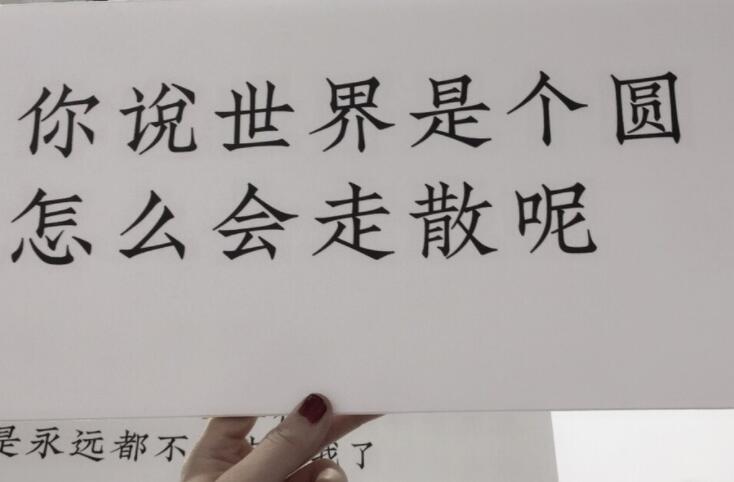 你说世界是个圆
怎么会走散呢
是永远都不 我了